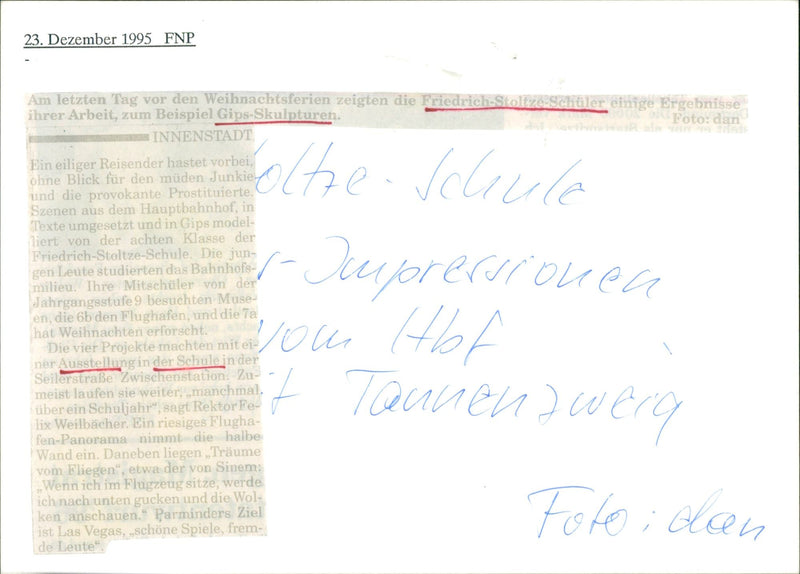 23. Dezember 1995 FNP
-
Am letzten Tag vor den Weihnachtsferien zeigten die Friedrich-Stoltze-Schüler einige Ergebnisse
ihrer Arbeit, zum Beispiel Gips-Skulpturen. Foto: dan
INNENSTADT
Ein eiliger Reisender hastet vorbei,
ohne Blick für den müden Junkie
und die provokante Prostituierte.
Szenen aus dem Hauptbahnhof, in
Texte umgesetzt und in Gips model-
liert von der achten Klasse der
Friedrich-Stoltze-Schule. Die jun-
gen Leute studierten das Bahnhofs-
milieu. Ihre Mitschüler von der
Jahrgangsstufe 9 besuchten Muse-
en, die 6b den Flughafen, und die 7a
hat Weihnachten erforscht.
Die vier Projekte machten mit ei-
ner Ausstellung in der Schule in der
Seilerstraße Zwischenstation. Zu-
meist laufen sie weiter, „manchmal
über ein Schuljahr“, sagt Rektor Fe-
lix Weilbächer. Ein riesiges Flugha-
fen-Panorama nimmt die halbe
Wand ein. Daneben liegen „Träume
vom Fliegen“, etwa der von Sinem:
„Wenn ich im Flugzeug sitze, werde
ich nach unten gucken und die Wol-
ken anschauen.“ Parminders Ziel
ist Las Vegas, „schöne Spiele, frem-
de Leute“.
oltze-Schule
r-Impressionen
vom Hbf
it Tannenzweig
Foto: dan